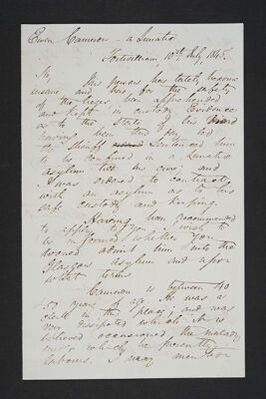 Ewen Cameron - a Lunatic
Fortwilliam, 10th July, 1845.
Sir, This person has lately become
insane and has for the safety
of the lieges been apprehended
and kept in custody Evidence
as to the state of his mind
having been this day led
the Sheriff Sentenced him
to be confined in a Lunatic
asylum that is, and
I was ordered to
with an asylum as to his
safe custody and keeping.
Having been recommended
to apply to you I wish to
be informed whether you
admit him into the
Glasgow Asylum and upon
what terms
Cameron is between 40
50 years of age He was a
in the place, and was
very dissipated which it is
believed occasioned the malady
under which he presently
labours. I may mention